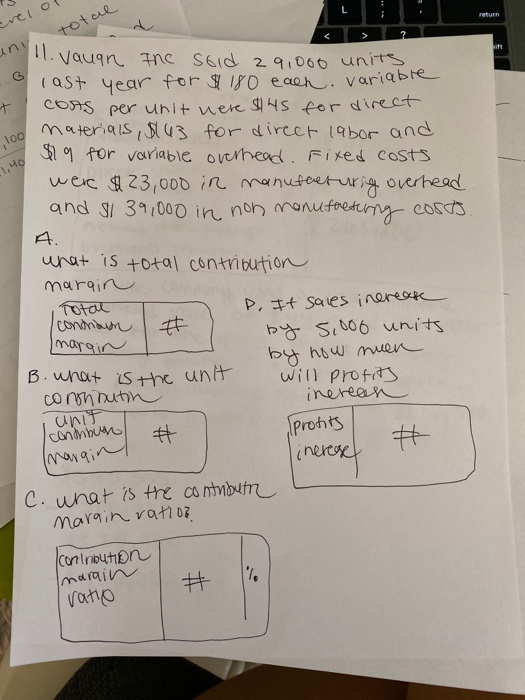 evel of
total
uni
d
G
,100
1,40
L
;
<
>
?
return
ift
11. Vauqn Inc Sold 29,000 units
last year for $180 each. variable
costs per unit were $45 for direct
materials, $43 for direct labor and
$19 for variable overhead. Fixed costs
were $ 23,000 in manufacturig overhead
and $1 39,000 in non manufacturing costs
A.
what is total contribution
margin
Total
contribution
margin
#
B. what is the unit
contributin
unit
contribution
margin
#
C. what is the contributn
margin ratio?
contribution
margin
ratio
#
%
D. If sales increase
by 5,000 units
by how much
will profits
increase
profits
increase
#